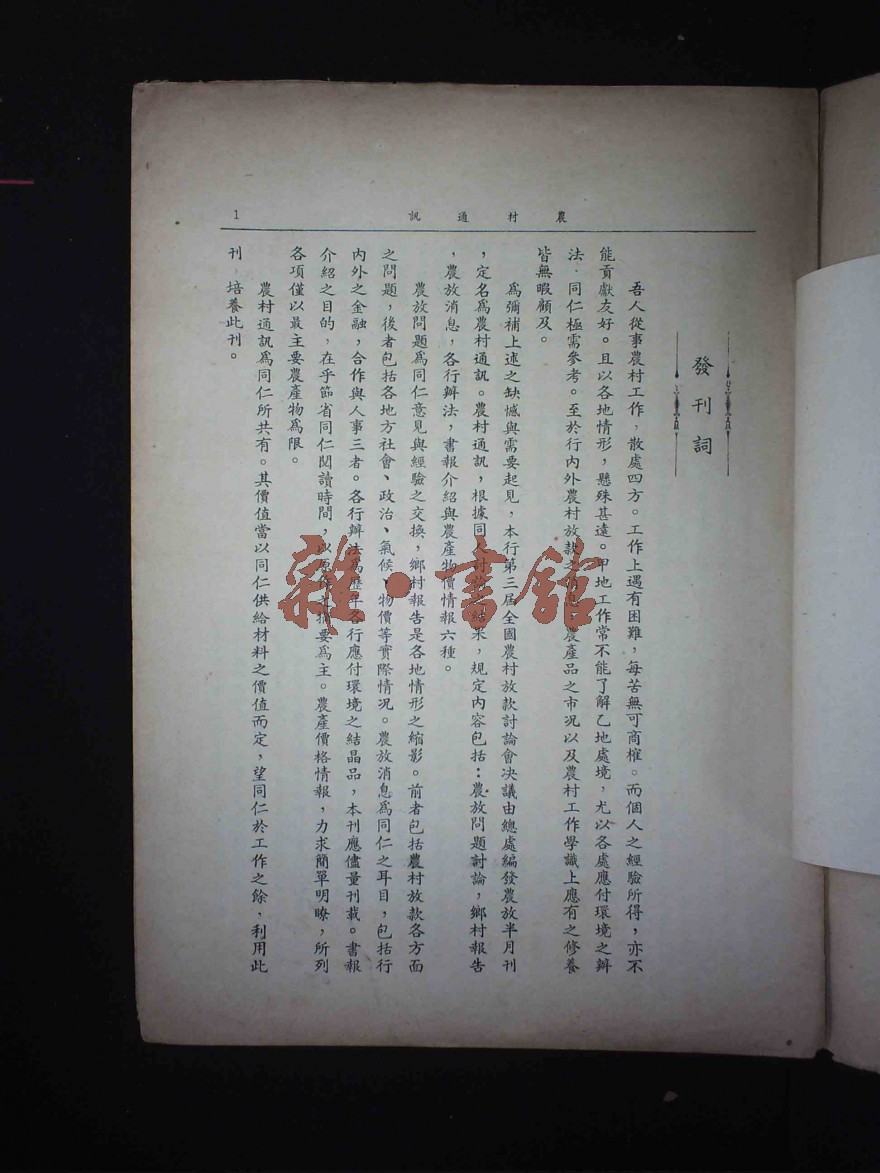 農村通訊
1
發刊詞
吾人從事農村工作,散處四方。工作上遇有困難,每苦無可商榷。而個人之經驗所得,亦不
能貢獻友好。且以各地情形,懸殊甚遠。甲地工作常不能了解乙地處境,尤以各處應付環境之辦
法.同仁極需參考。至於行內外農村放款之消息,農產品之市況以及農村工作學識上應有之修養
皆無暇顧及。
為彌補上述之缺憾與需要起見,本行第三屆全國農村放款討論會决議由總處編發農放半月刊
,定名為農村通訊。農村通訊,根據同人討論結果,規定內容包括:農放問題討論,鄉村報告
,農放消息,各行辦法,書報介紹與農產物價情報六種。
農放問題為同仁意見與經驗之交換,鄉村報告是各地情形之縮影。前者包括農村放款各方面
之問題,後者包括各地方社會、政治、氣候、物價等實際情況。農放消息為同仁之耳目,包括行
內外之金融,合作與人事三者。各行辦法為歷年各行應付環境之結晶品,本刊應儘量刊載。書報
介紹之目的,在乎節省同仁閱讀時間,以原作之摘要為主。農產價格情報,力求簡單明瞭,所列
各項僅以最主要農產物為限。
農村通訊為同仁所共有。其價值當以同仁供給材料之價值而定,望同仁於工作之餘,利用此
刊,培養此刊。
雜·書館